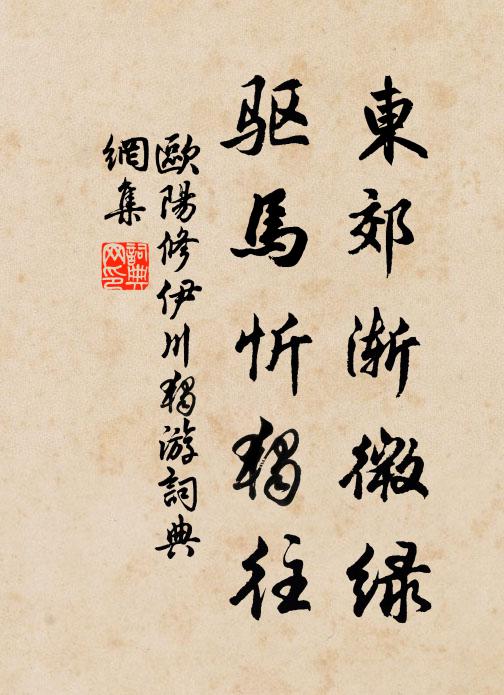 東郊漸微綠
驱馬忻獨往
歐陽修伊川獨游詞典
網集
詞典网印